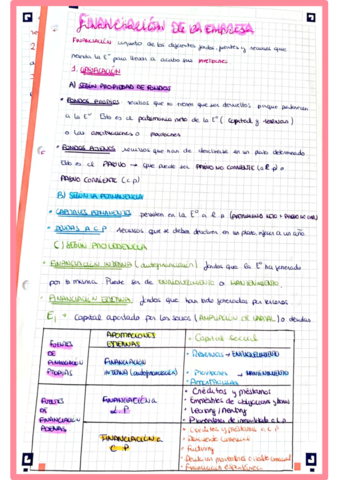 FINANCIACIÓN DE LA EMPRESA
FINANCIACIÓN conjunto de los diferentes fondos, fuentes y recursos que
necesita la Eª para llevar a acabo sus
1. CLASIFICACIÓN
A) SEGÚN PROPIEDAD DE FONDOS
• FONDOS PROPIOS recursos que no tienen que ser devueltos porque pertenecen
a la Eª. Ello es el patrimonio neto de la Eª (capital y reservas)
o las amortizaciones o provisiones
• FONDOS AJENOS recursos que han de devolverse en un plazo determinado
Ello es el PASIVO → que puede ser PASIVO NO CORRIENTE (a L.p) o
PASIVO CORRIENTE (c.p)
B) SEGÚN LA PERMANENCIA
• CAPITALES PERMANENTES permanecen en la Eª a L.p (PATRIMONIO NETO + PASIVO NO CORR)
• DEUDAS A C.P recursos que se deben devolver en un plazo inferior a un año.
C) SEGÚN PROCEDENCIA
• FINANCIACIÓN INTERNA (autofinanciación) fondos que la Eª ha generado
por si misma. Puede ser de ENRIQUECIMIENTO o MANTENIMIENTO.
• FINANCIACIÓN EXTERNA fondos que han sido generados por
Ej → Capital aportado por los socios (AMPLIACIÓN DE CAPITAL) o deudas
FUENTES DE FINANCIACIÓN PROPIAS
APORTACIONES EXTERNAS
• Capital Social
FINANCIACIÓN INTERNA (autofinanciación)
• Reservas → ENRIQUECIMIENTO
• Provisiones → MANTENIMIENTO
• Amortización
FUENTES DE FINANCIACIÓN AJENAS
FINANCIACIÓN a L.P
• Créditos y préstamos
• Empréstitos de obligaciones y bonos
• Leasing / renting
• Proveedores de inmovilizado a L.P
FINANCIACIÓN a C.P
• Créditos y préstamos a C.P
• Descuento comercial
• Factoring
• Financiación espontánea